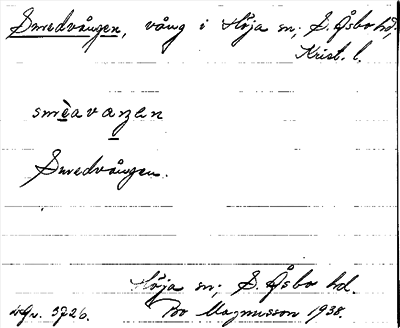 Smedvången, vång i Höja sn; S. Åsbo hd,
Krist. l.
smèavaŋen
Smedvången.
Höja sn; S. Åsbo hd.
3726. Bo Magnusson 1938.